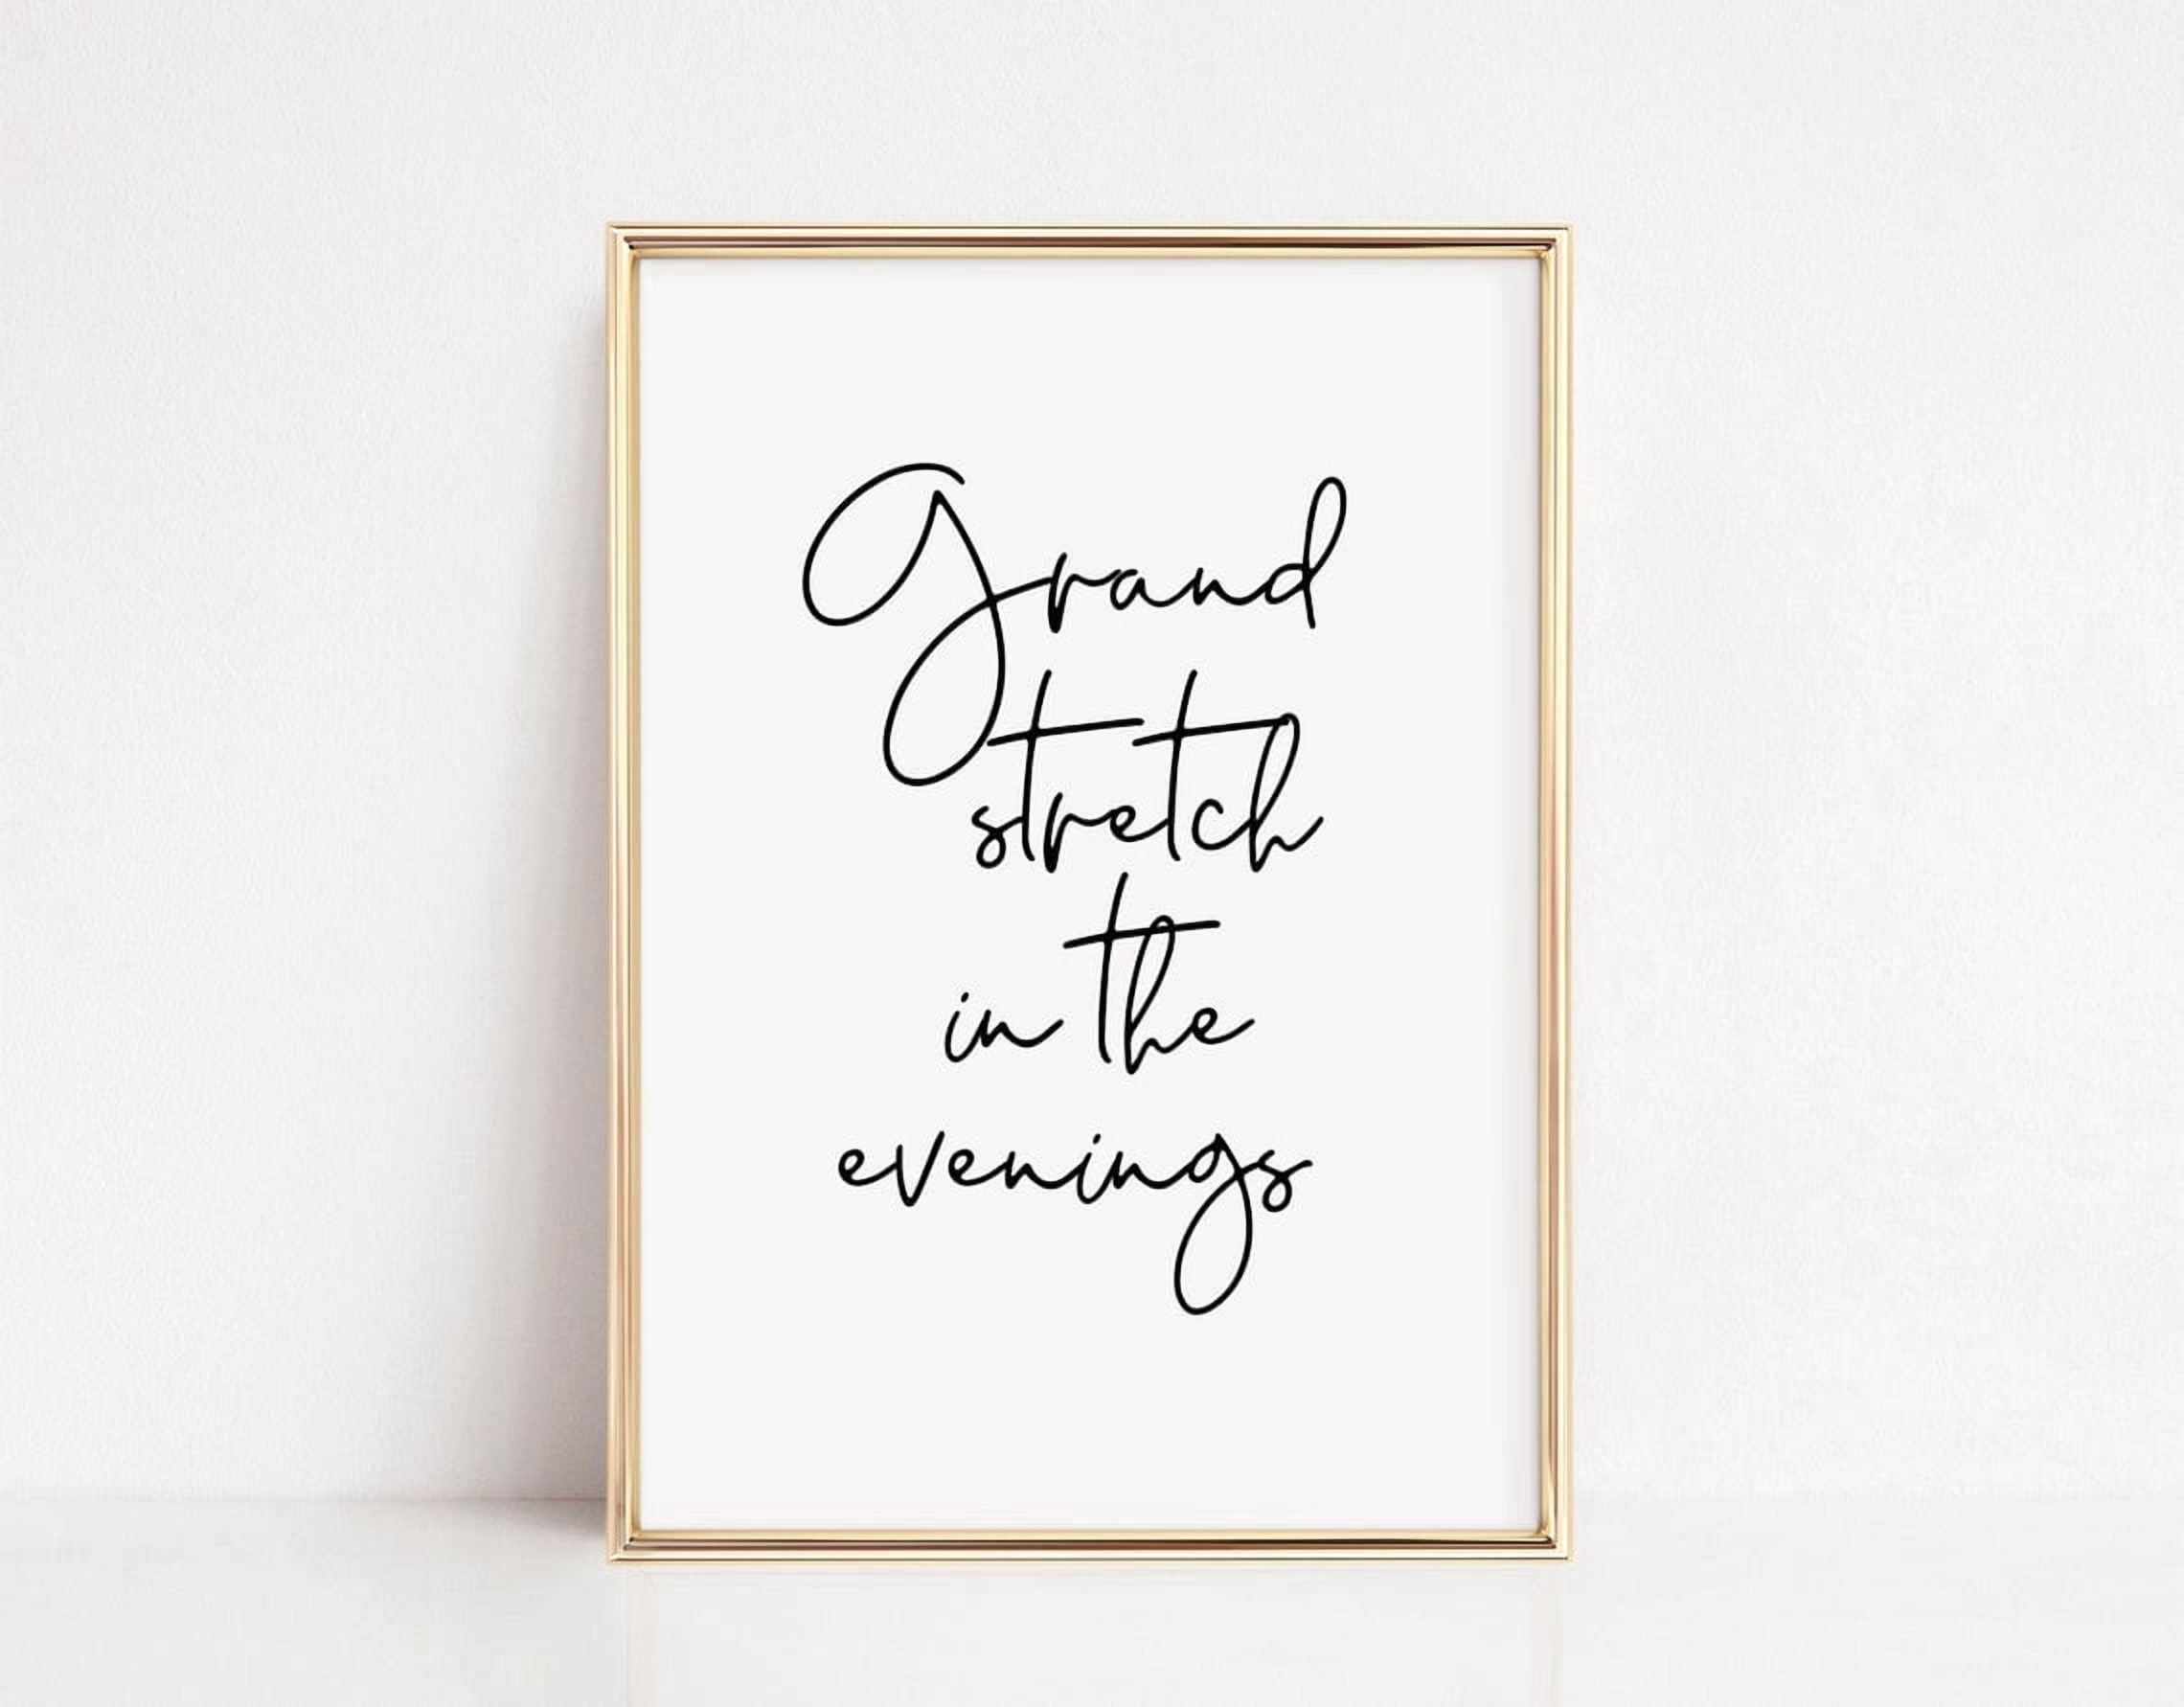 Grand
stretch
in the
evenings